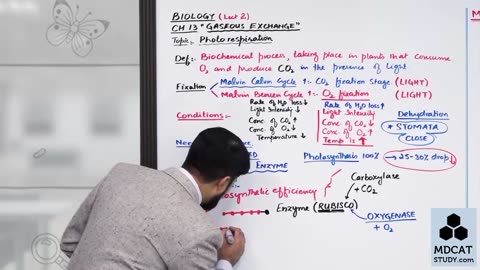 BIOLOGY (Lect 2)
CH 13 "GASEOUS EXCHANGE"
Topic:- Photorespiration
Def:- Biochemical process, taking place in plants that consume
O₂ and produce CO₂ in the presence of light
Fixation
Malvin Calvin Cycle ↑:- CO₂ fixation stage (LIGHT)
Malvin Benson Cycle ↑:- O₂ fixation (LIGHT)
Conditions:-
Rate of H₂O loss↓
Light Intensity ↓
Conc of CO₂ ↑
Conc of O₂ ↓
Temperature ↓
Rate of H₂O loss↑
Light Intensity
Conc of CO₂↓
Conc of O₂↑
Temp is ↑
Dehydration
* STOMATA
CLOSE
ENZYME
Photosynthesis 100% → 25-30% drop↓
synthetic efficiency
Carboxylase
+ CO₂
Enzyme (RUBISCO)
OXYGENASE
+ O₂
M
MDCAT
STUDY.com